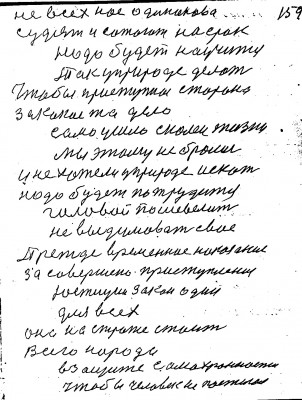 не всех нас одинаково 159
судят и сажают на срок
надо будет научить
Так природе делат
Чтобы приступит сторона
За какое та дело
само ушло жизни
мы этому не
и не хотели природе искат
надо будет потрудить
головой пошевелит
не выдумоват свое
Прежде временное наказание
За совершено приступления
юстиции закон один
для всех
она на страже стоит
всего народа
в защите самохранности
чтобы человек не